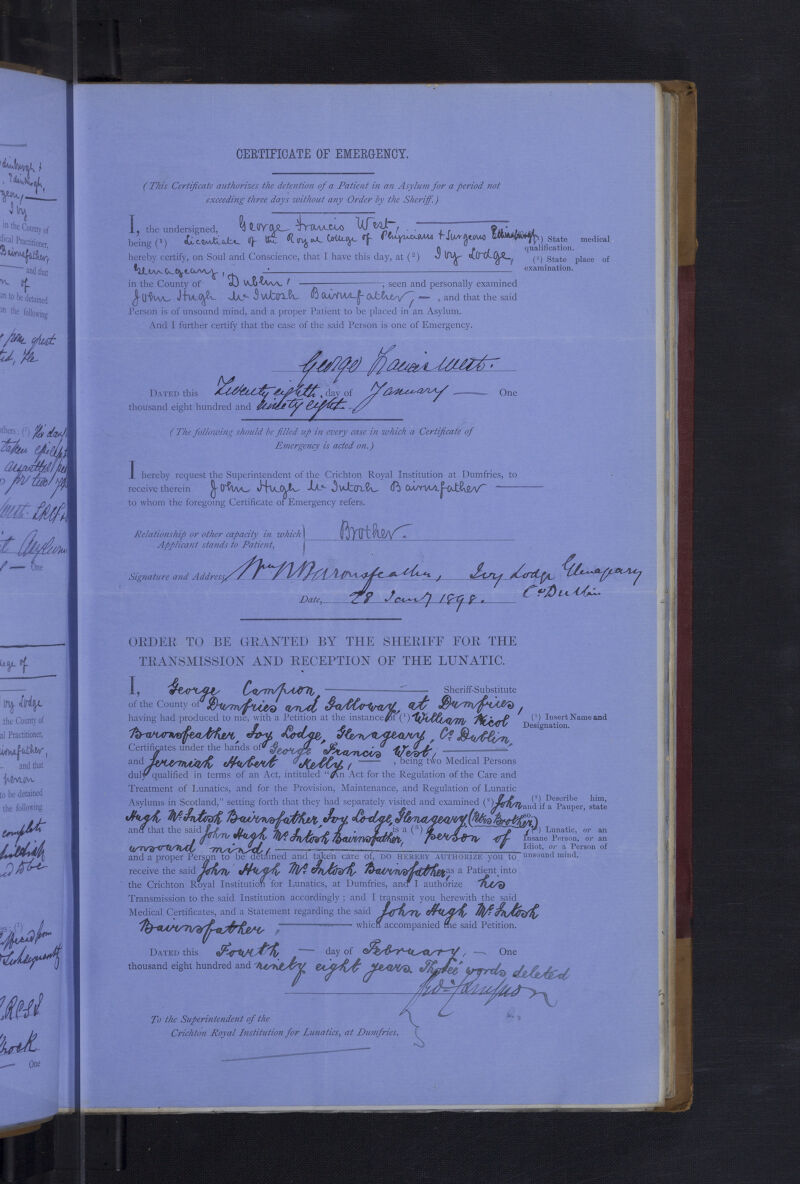 CERTIFICATE OF EMERGENCY.
(This Certificate authorizes the detention of a Patient in an Asylum for a period not
exceeding three days without any Order by the Sheriff.)
I, the undersigned, George Francis West,
being (¹) Licentiate of the Royal College of Physicians & Surgeons Edinburgh
(¹) State medical
qualification.
hereby certify, on Soul and Conscience, that I have this day, at (²) Ivy Lodge,
(²) State place of
examination.
Glenageary,
in the County of Dublin, ; seen and personally examined
John Hugh McIntosh Bairnsfather, — , and that the said
Person is of unsound mind, and a proper Patient to be placed in an Asylum.
And I further certify that the case of the said Person is one of Emergency.
George Francis West.
DATED this Twenty eighth, day of January — One
thousand eight hundred and ninety eight.
(The following should be filled up in every case in which a Certificate of
Emergency is acted on.)
I hereby request the Superintendent of the Crichton Royal Institution at Dumfries, to
receive therein John Hugh McIntosh Bairnsfather
to whom the foregoing Certificate of Emergency refers.
Relationship or other capacity in which
Applicant stands to Patient, Brother.
Signature and Address, Wm N Baronsfeather, Ivy Lodge Glenageary
Co Dublin
Date, 28 Jany 1898.
ORDER TO BE GRANTED BY THE SHERIFF FOR THE
TRANSMISSION AND RECEPTION OF THE LUNATIC.
I, George Campion, Sheriff-Substitute
of the County of Dumfries and Galloway, at Dumfries,
having had produced to me, with a Petition at the instance of (¹) William Nicol
(¹) Insert Name and
Designation.
Baronsfeather Ivy Lodge, Glenageary, Co. Dublin,
Certificates under the hands of George Francis West,
and Jeremiah Hubert Kelly, — , being two Medical Persons
duly qualified in terms of an Act, intituled "An Act for the Regulation of the Care and
Treatment of Lunatics, and for the Provision, Maintenance, and Regulation of Lunatic
Asylums in Scotland," setting forth that they had separately visited and examined (²) John
(²) Describe him,
and if a Pauper, state
so.
Hugh McIntosh Bairnsfather, Ivy Lodge, Glenageary (His Brother)
and that the said John Hugh McIntosh Bairnsfather, is a (³) person of
(³) Lunatic, or an
Insane Person, or an
Idiot, or a Person of
unsound mind.
unsound mind,
and a proper Person to be detained and taken care of, DO HEREBY AUTHORIZE you to
receive the said John Hugh McIntosh Bairnsfather, as a Patient into
the Crichton Royal Institution for Lunatics, at Dumfries, and I authorize his
Transmission to the said Institution accordingly ; and I transmit you herewith the said
Medical Certificates, and a Statement regarding the said John Hugh McIntosh
Bairnsfather, which accompanied the said Petition.
DATED this Fourth — day of February, — One
thousand eight hundred and ninety eight years. Three words deleted
Geo. Campion
To the Superintendent of the
Crichton Royal Institution for Lunatics, at Dumfries.